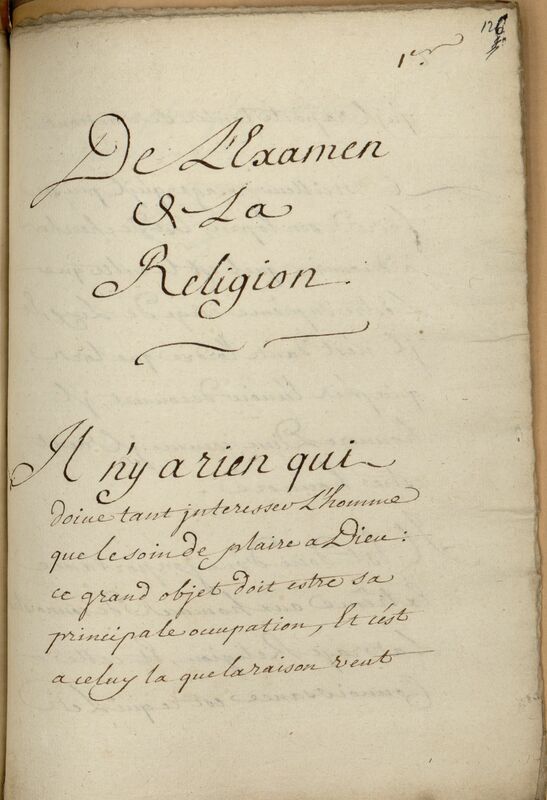 126
1er
De L'Examen
& La
Religion.
Il n'y a rien qui
doiue tant jnteresser L'homme
que le soin de plaire a Dieu:
ce grand objet doit estre sa
principale occupation, Et c'est
a celuy la que la raison veut